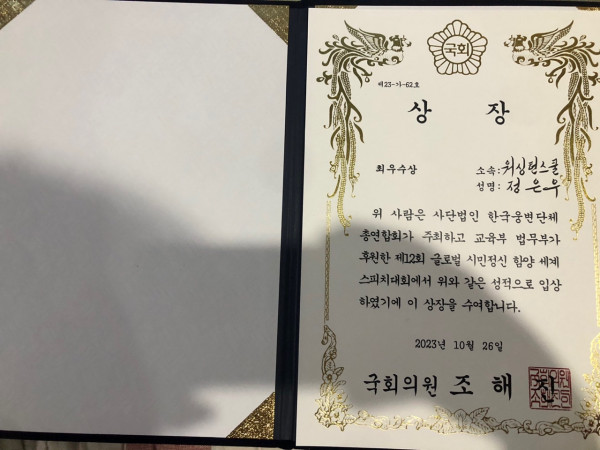 국회
제23-가-62호
상 장
최우수상
소속: 워싱턴스쿨
성명: 정은우
위 사람은 사단법인 한국웅변단체
총연합회가 주최하고 교육부 법무부가
후원한 제12회 글로벌 시민정신 함양 세계
스피치대회에서 위와 같은 성적으로 입상
하였기에 이 상장을 수여합니다.
2023년 10월 26일
국회의원 조 해 진